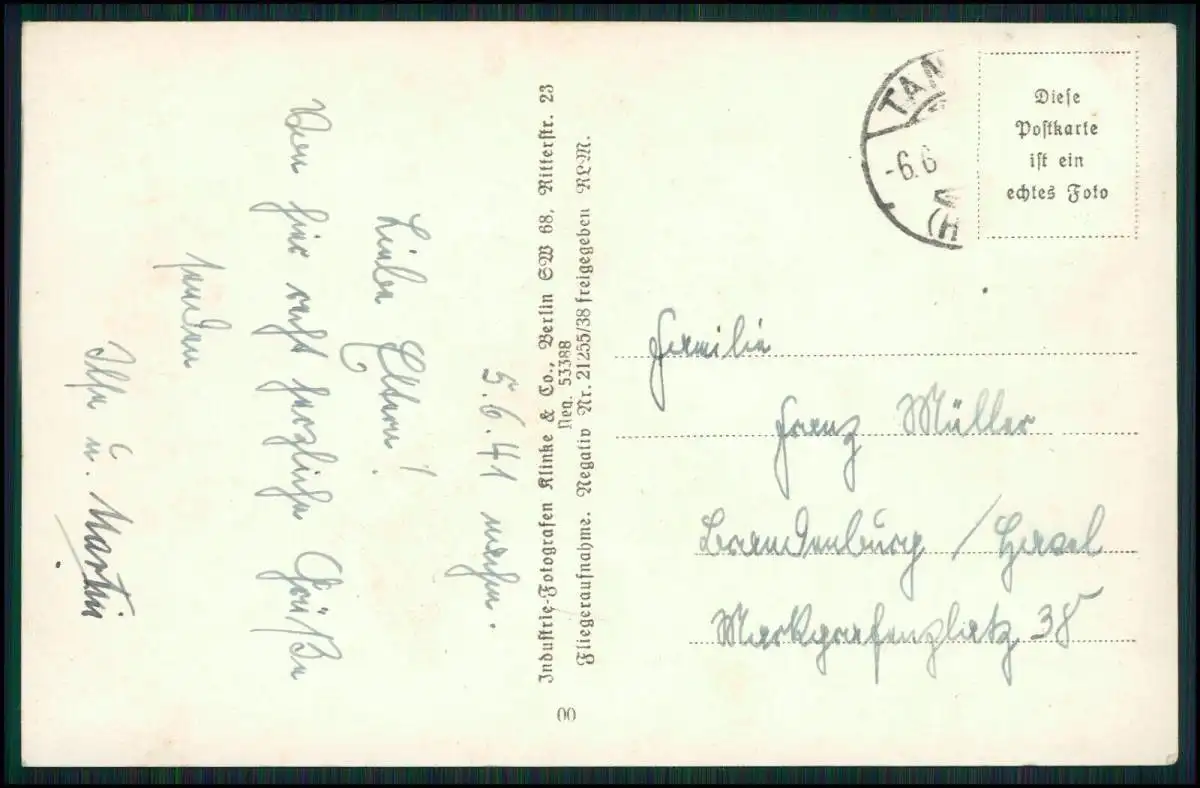 5.6.41 
Liebe Eltern!
Von hier recht herzliche Grüße
senden
Ilse u. Martin
Industrie-Fotografen Klinke & Co., Berlin SW 68, Ritterstr. 23
Neg. 53388
Fliegeraufnahme. Negativ Nr. 21255/38 freigegeben RLM.
00
TAN
-6.6
(H
Diese
Postkarte
ist ein
echtes Foto
Familie
Franz Müller
Brandenburg / Havel
Markgrafenplatz 38